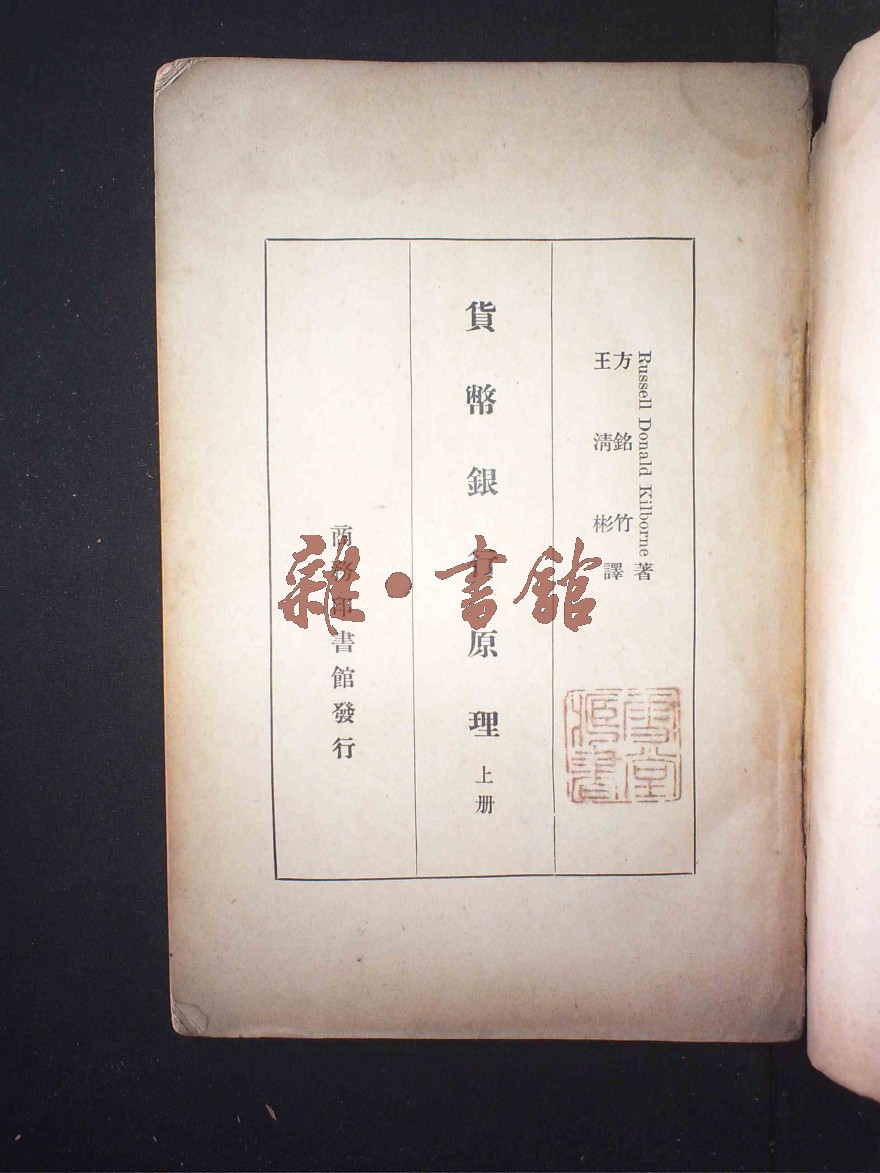 Russell Donald Kilborne 著
方銘竹
王清彬 譯
貨幣銀行原理 上册
商務印書館發行
雪堂
藏書
雜·書館